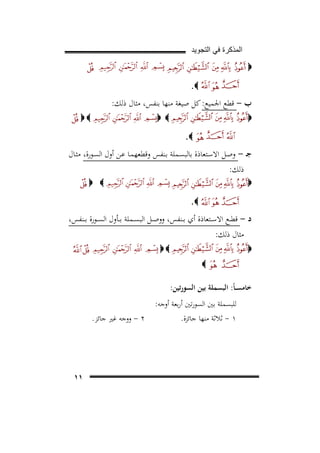 المذكرة في التجويد
﴿ أَعُوذُ بِاللَّهِ مِنَ الشَّيْطَٰنِ الرَّجِيمِ بِسْمِ اللَّهِ الرَّحْمَٰنِ الرَّحِيمِ قُلْ
هُوَ اللَّهُ أَحَدٌ ﴾.
ب – قطع الجميع: كل صيغة منها بنفس، مثال ذلك:
﴿ أَعُوذُ بِاللَّهِ مِنَ الشَّيْطَٰنِ الرَّجِيمِ ﴾ ﴿ بِسْمِ اللَّهِ الرَّحْمَٰنِ الرَّحِيمِ ﴾ ﴿ قُلْ
هُوَ اللَّهُ أَحَدٌ ﴾.
جـ – وصل الاستعاذة بالبسملة بنفس وقطعهما عن أول السورة، مثال
ذلك:
﴿ أَعُوذُ بِاللَّهِ مِنَ الشَّيْطَٰنِ الرَّجِيمِ بِسْمِ اللَّهِ الرَّحْمَٰنِ الرَّحِيمِ ﴾ ﴿ قُلْ
هُوَ اللَّهُ أَحَدٌ ﴾.
د – قطع الاستعاذة أي بنفس، ووصل البسملة بأول السورة بنفس،
مثال ذلك:
﴿ أَعُوذُ بِاللَّهِ مِنَ الشَّيْطَٰنِ الرَّجِيمِ ﴾ ﴿ بِسْمِ اللَّهِ الرَّحْمَٰنِ الرَّحِيمِ قُلْ هُوَ اللَّهُ
أَحَدٌ ﴾
خامساً: البسملة بين السورتين:
للبسملة بين السورتين أربعة أوجه:
١ - ثلاثة منها جائزة. ٢ - ووجه غير جائز.
١١